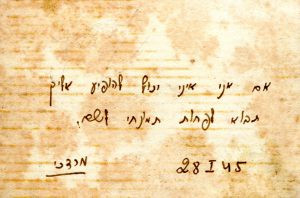 אם אני איני יכול להופיע אליך
תבוא לפחות תמונתי לשם.
מרדכי 28 I 45